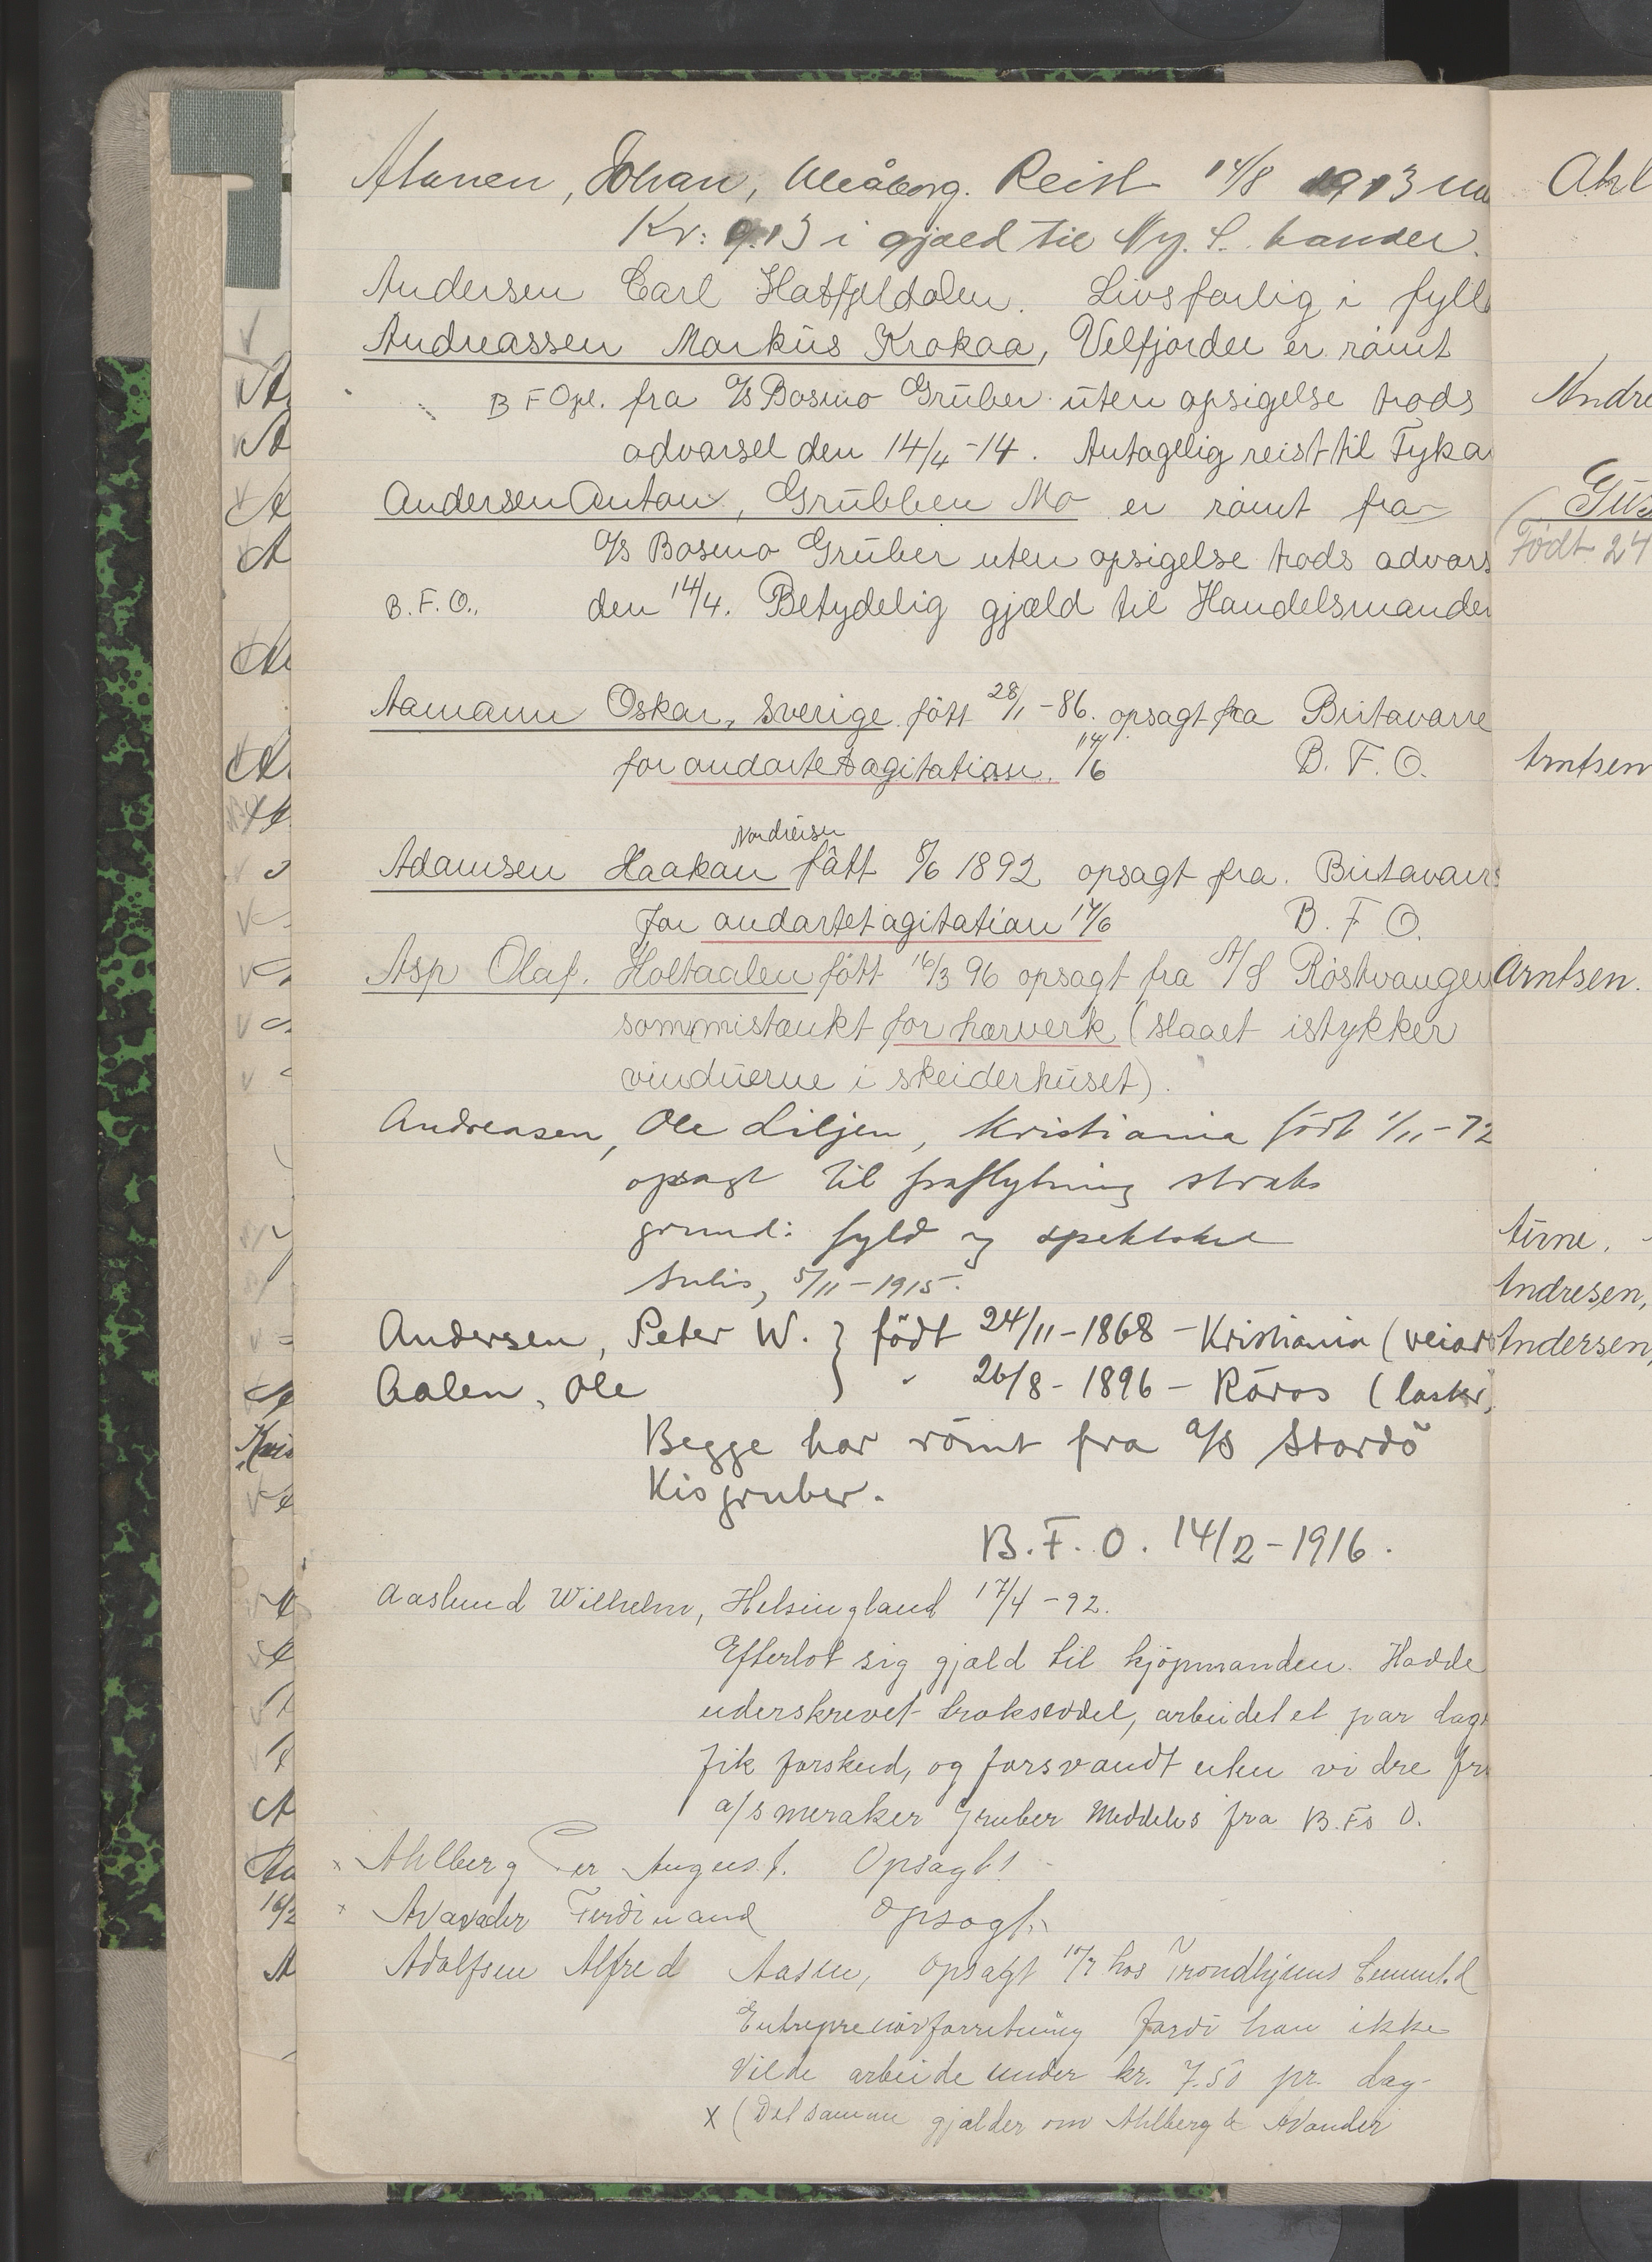 Alanen, Johan, Uleåborg. Reist 14/8 1913
Kr: 9.13 i gjæld til Ny. S. hander.
Andersen Carl Hatfjeldalen. Livsfarlig i fyll
Andreassen Markus Krokaa, Velfjorden er rømt
B F Opl. fra A/S Bosmo Gruber uten opsigelse trods
advarsel den 14/4-14. Antagelig reist til Fyka
Andersen Anton, Grubben Mo er rømt fra
A/S Bosmo Gruber uten opsigelse trods advars
B. F. O., den 14/4. Betydelig gjæld til Handelsmanden
Aamann Oskar, Sverige født 28/1-86. opsagt fra Birtavarre
for ondartet agitation. 14/6 B. F. O.
Nordreisen
Adamsen Haakan født 8/6 1892 opsagt fra. Birtavarre
for ondartet agitation 14/6 B. F O.
Asp Olaf. Holtaalen født 16/3 96 opsagt fra A/S Röstvangen
som mistænkt for hærverk (slaaet istykker
vinduerne i skeiderhuset).
Andreasen, Ole Liljen, Kristiania født 1/11-72
opsagt til fraflytning straks
grund: fyld og spektakel
Sulis, 5/11-1915.
Andersen, Peter W. } født 24/11-1868 - Kristiania (veiar
Aalen, Ole } " 26/8-1896 - Röros (lasker)
Begge har römt fra A/S Stordö
Kisgruber.
B. F. O. 14/2-1916.
Aaslund Wilhelm, Helsingland 17/4-92.
Efterlot sig gjæld til kjöpmanden. Hadde
uderskrevet trækseddel, arbeidet et par dage
fik forskud, og forsvandt uten vidre fra
a/s meraker Gruber Meddeles fra B. Fs O.
x Ahlberg Per August. Opsagt!
x Ferdinand Opsagt.
Adolfsen Alfred Aasen, opsagt hos Trondhjems Cement. &
Entreprenörforretning fordi han ikke
vilde arbeide under kr. 7.50 pr. dag.
x (Det samme gjælder om Ahlberg & Avander
Ahl
Andre
Gus
Födt 24
Arntsen
Arntsen.
Arne.
Andresen,
Andersen,